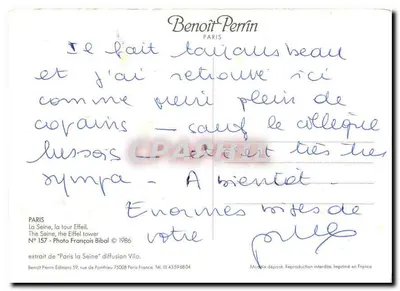 Benoît Perrin
PARIS
Il fait toujours beau
et j'ai retrouvé ici
comme plein de
copains — sauf le collègue
— et c'est très très
sympa — A bientôt —
Enormes bises de
votre
PARIS
La Seine, la tour Eiffel.
The Seine, the Eiffel tower
N° 157 - Photo François Bibal © 1986
extrait de "Paris la Seine" diffusion Vilo.
Benoit Perrin Editions 59, rue de Ponthieu 75008 Paris France. Tél. 01 43 59 08 04
Modèle déposé. Reproduction interdite. Imprimé en France